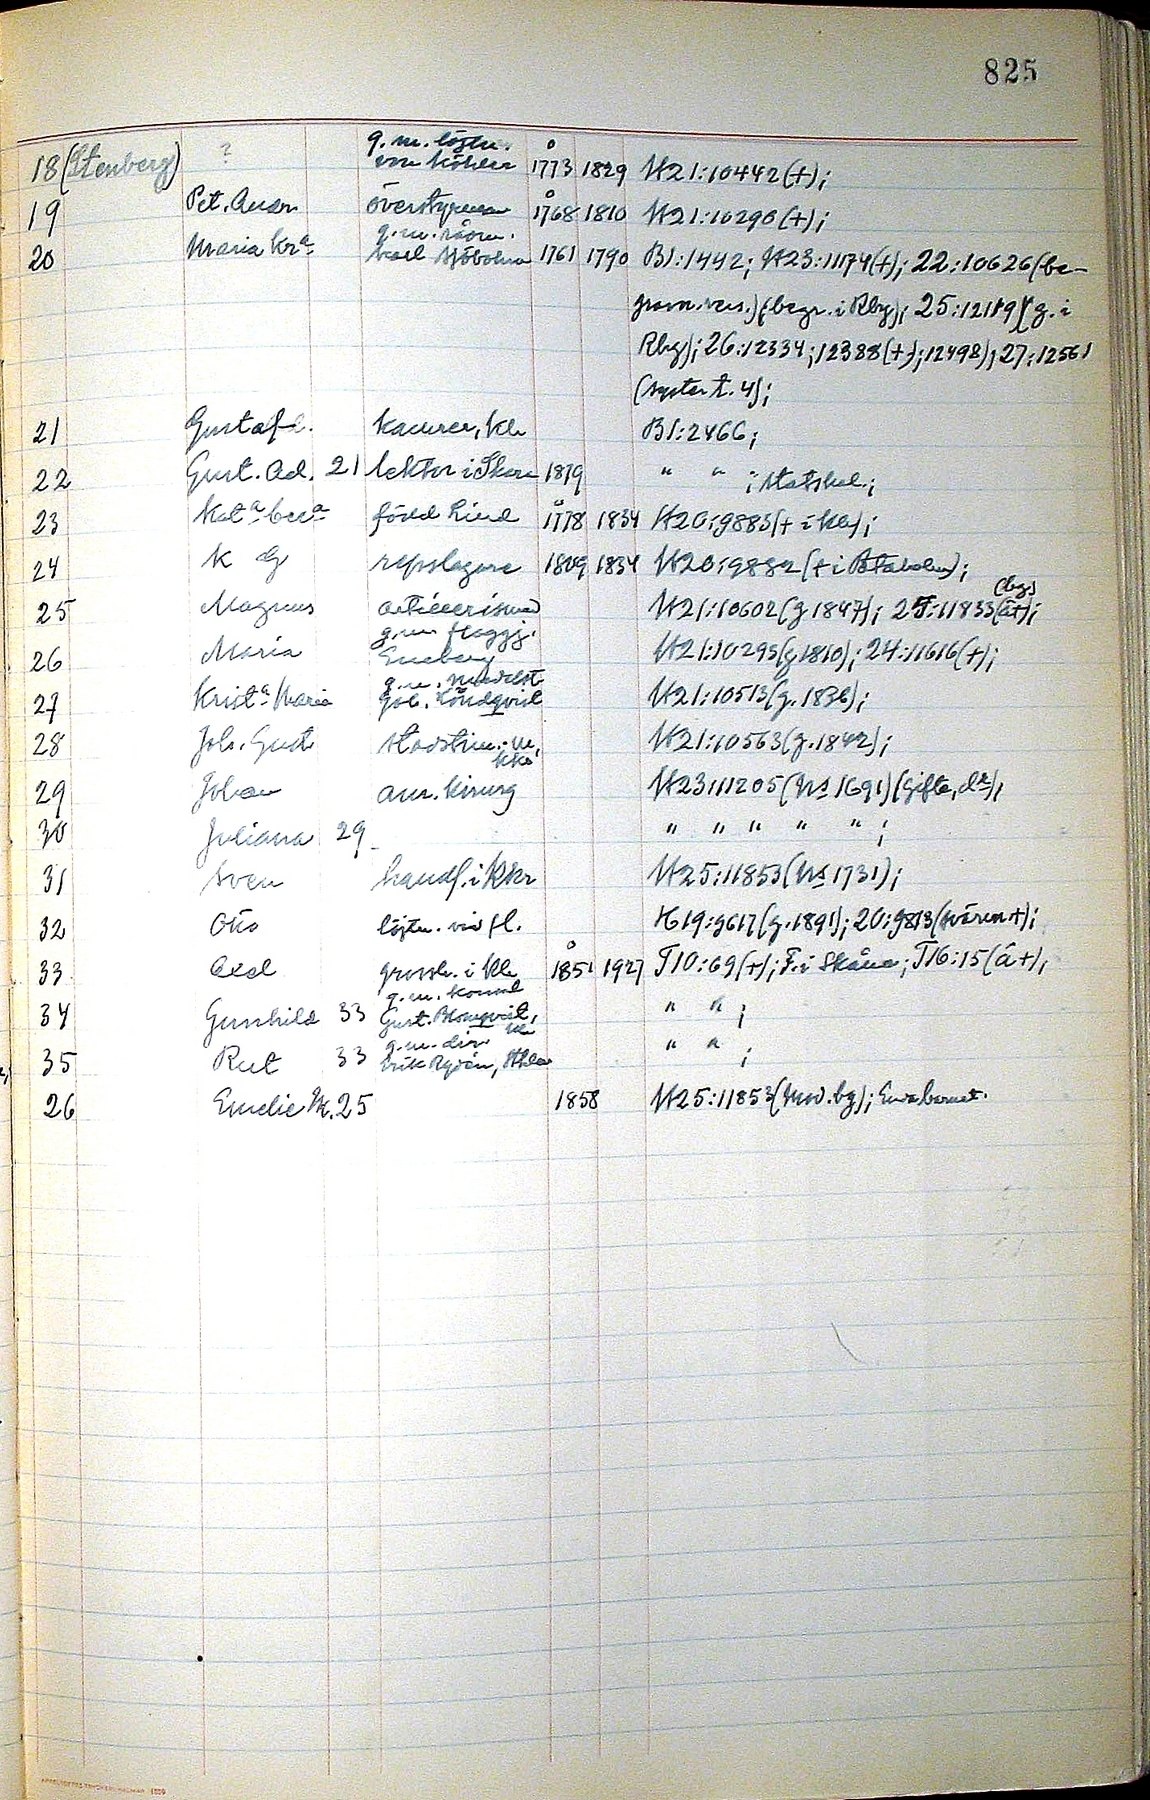 825
18 (Stenberg) ? g. m. löjtn. von Köhler 1773 1829 H21:10442(+);
19 Pet. Auson överstyrman 1768 1810 H21:10290(+);
20 Maria Kra g. m. råsm. Karl Sjöbohm 1761 1790 B1:1442; H23:11174(+); 22:10626(be-
gravn.) (begr. i Rby); 25:12189 (g. i
Rby); 26:12334; 12388(+); 12498); 27:12561
(syster t. 4);
21 Gustaf kamrer, Kla B1:2466;
22 Gust. Ad. 21 lektor i Skara 1819 " " ; Statskal.;
23 Kata född Lind 1778 1834 H20:9883(+ i Kla);
24 K G repslagare 1809 1834 H20:9882 (+ i);
25 Magnus artillerist H21:10602 (g. 1847); 25:11833 (å+); (bg)
26 Maria g. m. flaggj. Eneberg H21:10295 (g. 1810); 24:11616 (+);
27 Krista Maria g. m. Gob. Röndqvist H21:10513 (g. 1836);
28 Joh. Gust. H21:10563 (g. 1842);
29 Johan am. kirurg H23:11205 (No 1691) (gifte, dr);
30 Juliana 29 " " " " " ;
31 Sven handl. i Kkr H25:11853 (No 1731);
32 Otto löjtn. vid fl. H19:9617 (g. 1891); 20:9813 (svärm +);
33 Axel grossh. i Kla 1851 1927 T10:69 (+); F. i Skåne; T16:15 (å+);
34 Gunhild 33 g. m. konsul Gust. Blomqvist, " " ;
35 Rut 33 g. m. dir. Erik Rydén, Sthlm " " ;
26 Emelie M. 25 1858 H25:11853 (mod. bg); Enda barnet.